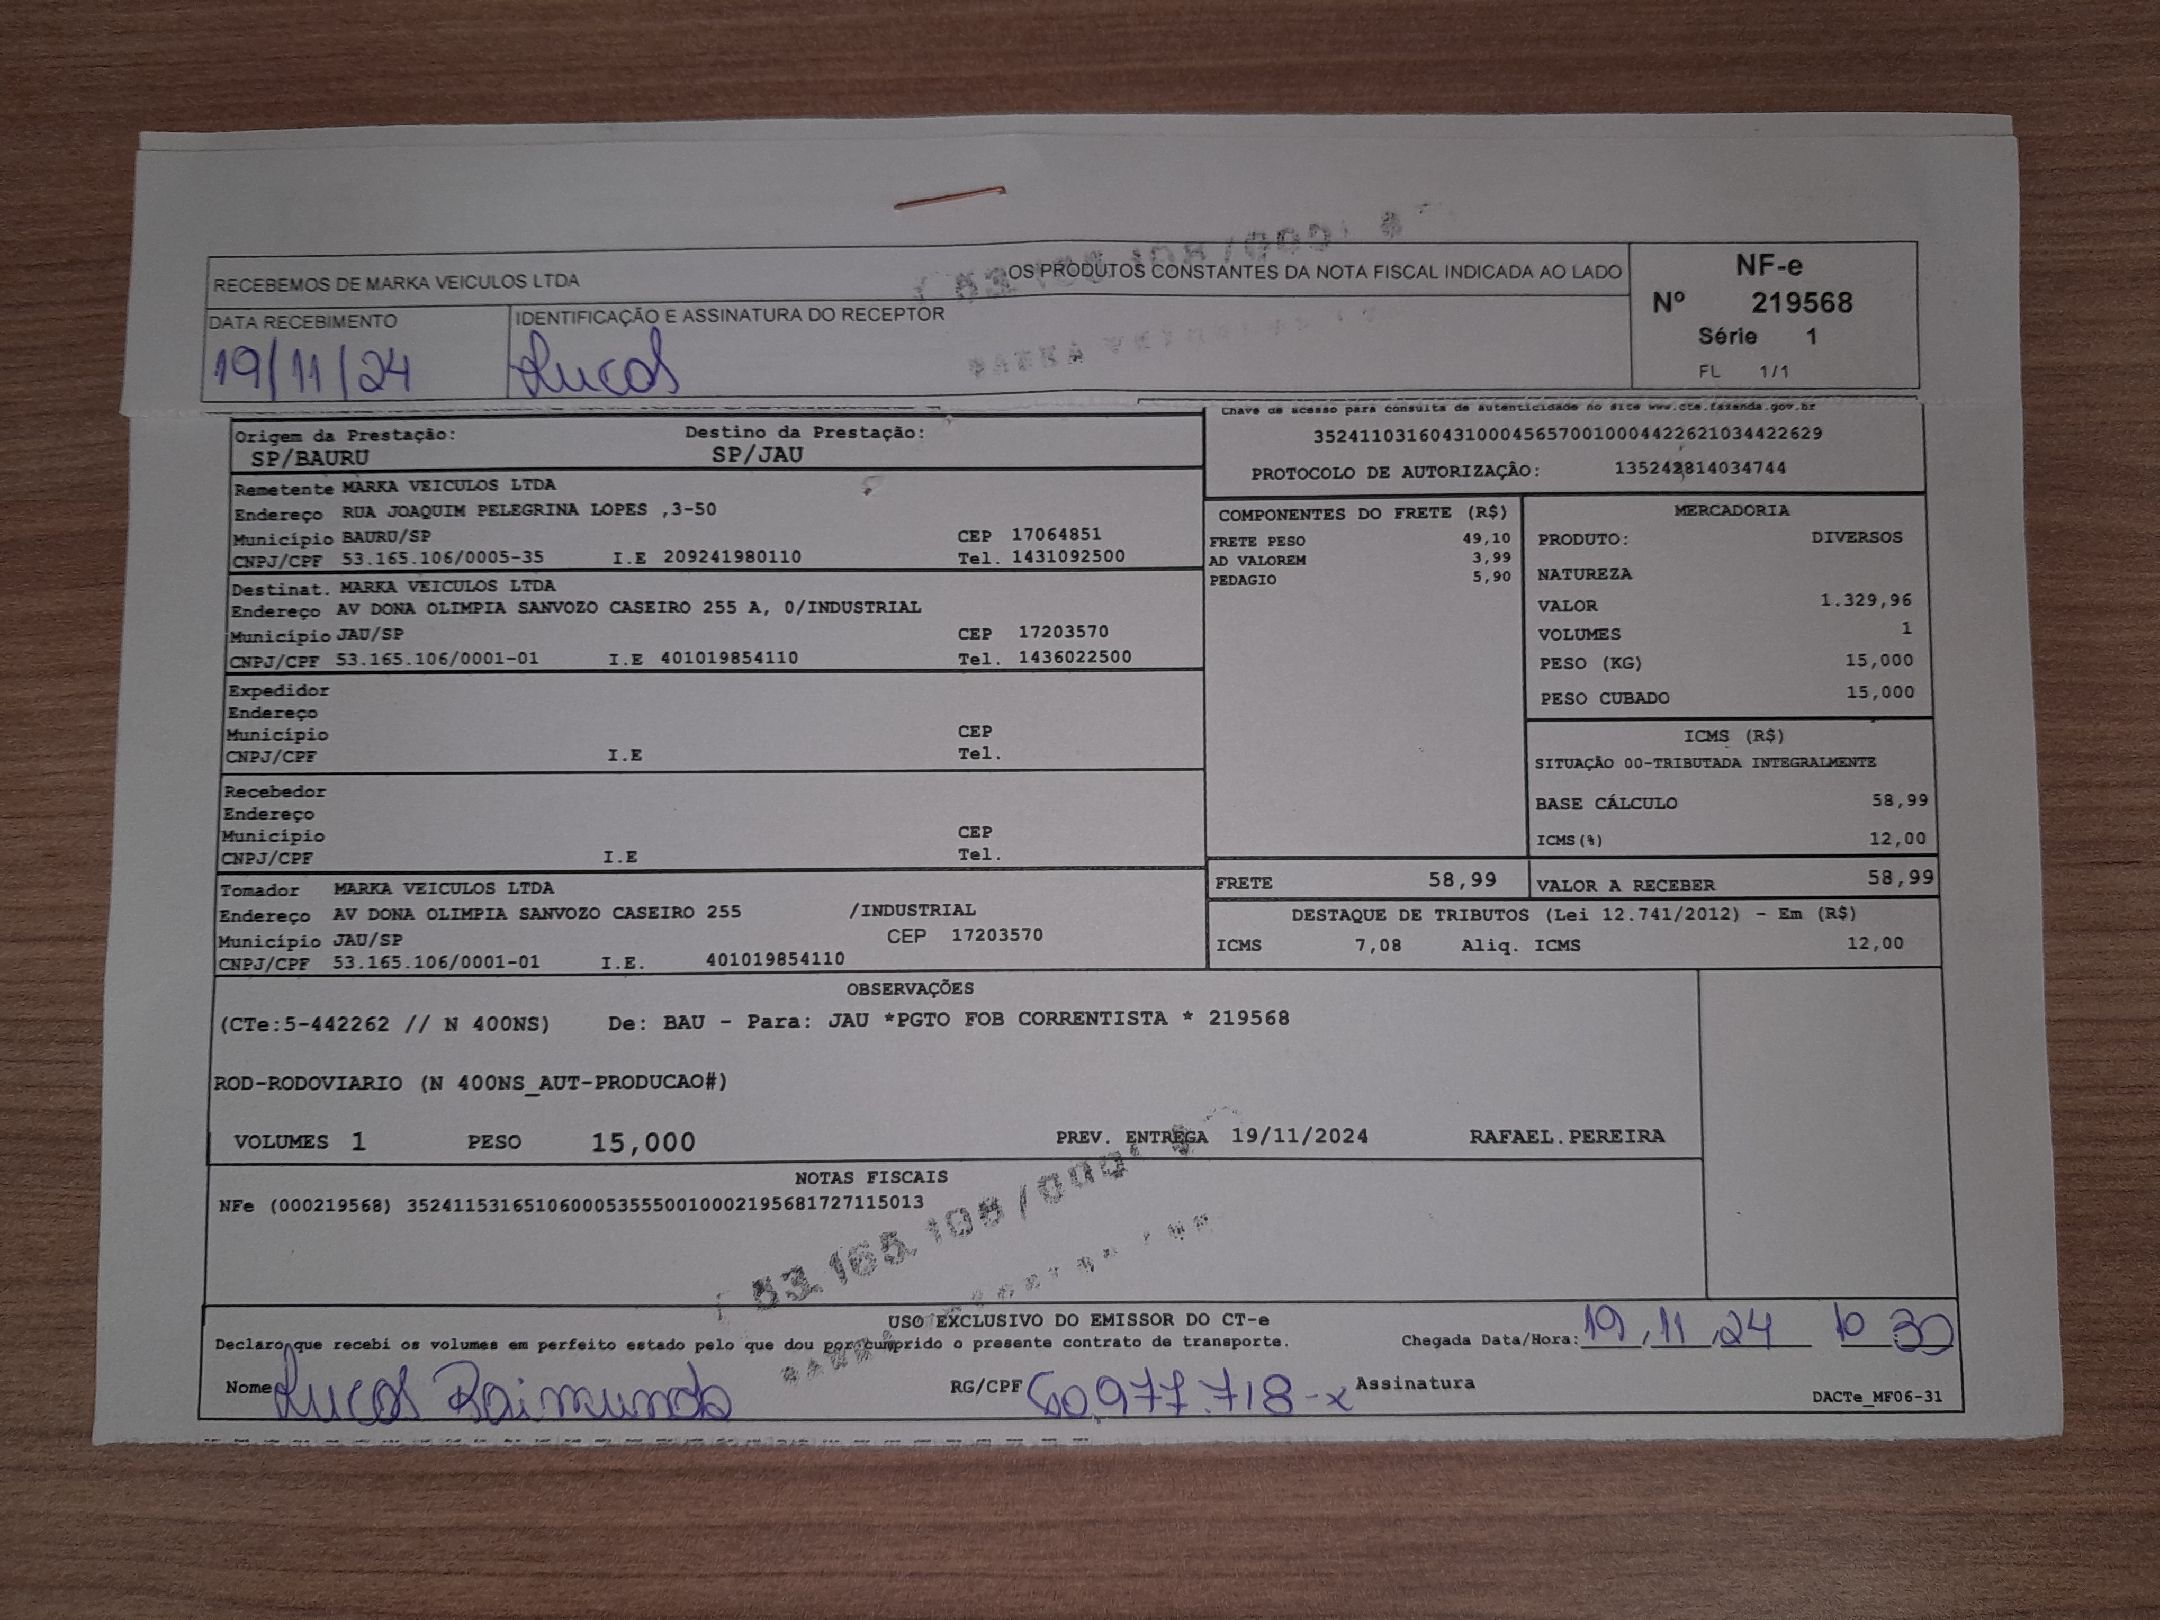 RECEBEMOS DE MARKA VEICULOS LTDA OS PRODUTOS CONSTANTES DA NOTA FISCAL INDICADA AO LADO
NF-e
Nº 219568
Série 1
FL 1/1
DATA RECEBIMENTO
19/11/24
IDENTIFICAÇÃO E ASSINATURA DO RECEPTOR
Lucas
Origem da Prestação: Destino da Prestação:
SP/BAURU SP/JAU
Chave de acesso para consulta de autenticidade no site www.cte.fazenda.gov.br
35241103160431000456570010004422621034422629
PROTOCOLO DE AUTORIZAÇÃO: 135242814034744
Remetente MARKA VEICULOS LTDA
Endereço RUA JOAQUIM PELEGRINA LOPES ,3-50
Município BAURU/SP CEP 17064851
CNPJ/CPF 53.165.106/0005-35 I.E 209241980110 Tel. 1431092500
Destinat. MARKA VEICULOS LTDA
Endereço AV DONA OLIMPIA SANVOZO CASEIRO 255 A, 0/INDUSTRIAL
Município JAU/SP CEP 17203570
CNPJ/CPF 53.165.106/0001-01 I.E 401019854110 Tel. 1436022500
Expedidor
Endereço
Município CEP
CNPJ/CPF I.E Tel.
Recebedor
Endereço
Município CEP
CNPJ/CPF I.E Tel.
Tomador MARKA VEICULOS LTDA
Endereço AV DONA OLIMPIA SANVOZO CASEIRO 255 /INDUSTRIAL
Município JAU/SP CEP 17203570
CNPJ/CPF 53.165.106/0001-01 I.E. 401019854110
COMPONENTES DO FRETE (R$)
FRETE PESO 49,10
AD VALOREM 3,99
PEDAGIO 5,90
MERCADORIA
PRODUTO: DIVERSOS
NATUREZA
VALOR 1.329,96
VOLUMES 1
PESO (KG) 15,000
PESO CUBADO 15,000
ICMS (R$)
SITUAÇÃO 00-TRIBUTADA INTEGRALMENTE
BASE CÁLCULO 58,99
ICMS(%) 12,00
FRETE 58,99 VALOR A RECEBER 58,99
DESTAQUE DE TRIBUTOS (Lei 12.741/2012) - Em (R$)
ICMS 7,08 Aliq. ICMS 12,00
OBSERVAÇÕES
(CTe:5-442262 // N 400NS) De: BAU - Para: JAU *PGTO FOB CORRENTISTA * 219568
ROD-RODOVIARIO (N 400NS_AUT-PRODUCAO#)
VOLUMES 1 PESO 15,000 PREV. ENTREGA 19/11/2024 RAFAEL.PEREIRA
NOTAS FISCAIS
NFe (000219568) 35241153165106000535550010002195681727115013
USO EXCLUSIVO DO EMISSOR DO CT-e
Declaro que recebi os volumes em perfeito estado pelo que dou por cumprido o presente contrato de transporte. Chegada Data/Hora: 19, 11, 24 10 30
Nome Lucas Raimundo RG/CPF 60.977.718-x Assinatura
DACTe_MF06-31